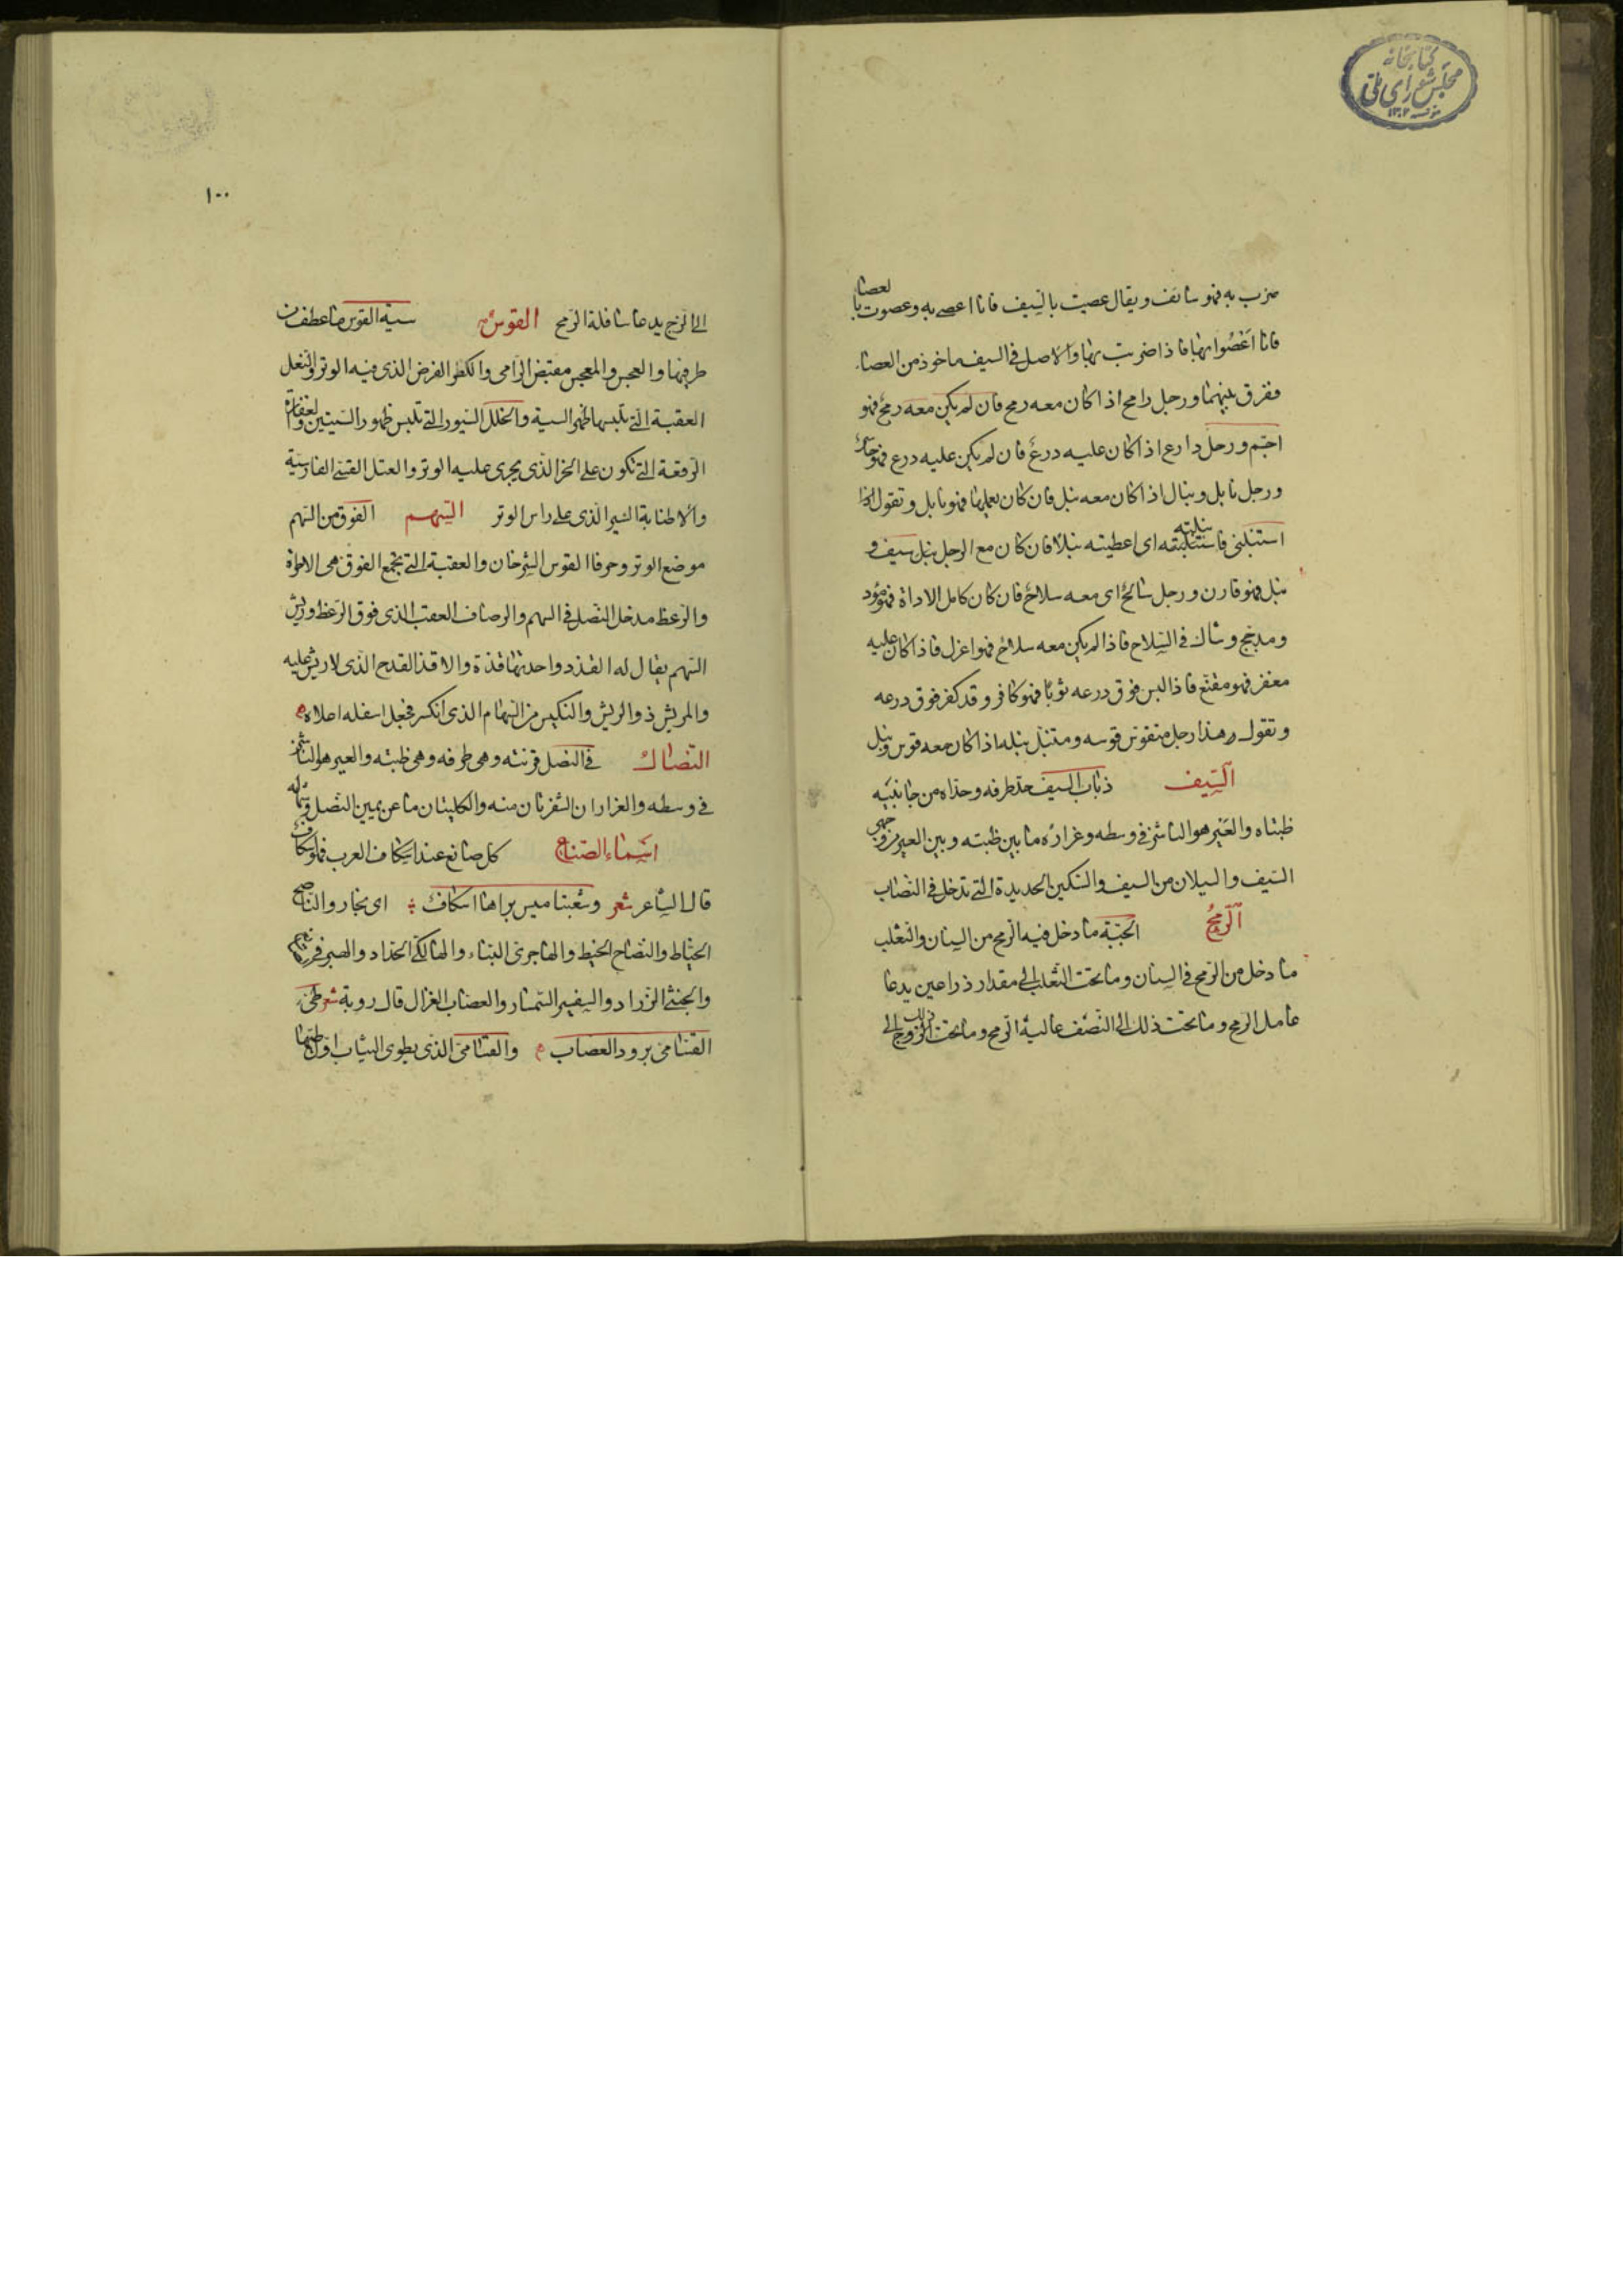 كتابخانه
مجلس شورای ملی
مؤسسه ١٣٠٢
ضرب به فهو سائف ويقال عصيت بالسّيف فانا اعصى به وعصوت بالعصا
فانا اعْصُوا بها فاذا ضربت بها والاصل في السيف ماخوذ من العصا
ففرق بينهما ورجل رامح اذا كان معه رمح فان لم يكن معه رمح فهو
اجَم ورجل دارع اذا كان عليه درع فان لم يكن عليه درع فهو حاسر
ورجل نابل ونبال اذا كان معه نبل فان كان يعملها فهو نابل وتقول اذا
استنبلنى فانبلته اى اعطيته نبلا فان كان مع الرجل نبل سيف و
نبل فهو قارن ورجل سالح اى معه سلاح فان كان كامل الاداة فهو مؤد
ومدجج وشاك في السّلاح فاذا لم يكن معه سلاح فهو اعزل فاذا كان عليه
مغفر فهو مقنع فاذا لبس فوق درعه ثوبًا فهو كافر وقد كفر فوق درعه
وتقول هذا رجل متقوس قوسه ومتنبّل نبله اذا كان معه قوس ونبل
السّيف ذباب السيف حد طرفه وحداه من جانبيه
ظبتاه والعَيْر هو الناشز في وسطه وغراره ما بين ظبته وبين العير من وجهى
السّيف والسيلان من السيف والسّكين الحديدة التى تدخل في النّصاب
الرّمحُ الجبّة ما دخل فيه الرّمح من السنان والثعلب
ما دخل من الرّمح في السنان وما تحت الثّعلب الى مقدار ذراعين يدعا
عامل الرمح وما تحت ذلك الى النّصف عالية الرّمح وما تحت ذلك الى
١٠٠
الى الزج يدعا سافلة الرّمح القوس سية القوس ما عطف من
طرفيها والعجس والمعجس مقبض الرّامى والكظر الفرض الذى فيه الوتر والنعل
العقبة الّتى تلبسها ظهر السية والخلل السّيور التى تلبس ظهور السّيتين والغفارة
الرّقعة التى تكون على الحز الذى يجرى عليه الوتر والعتل القسى الفارسية
والاطنابة السّير الّذى على راس الوتر السّهم الفوق من السّهم
موضع الوتر وحرفا القوس الشرخان والعقبة التى تجمع الفوق هى الاطرة
والرّعظ مدخل النّصل في السهم والرصاف العقب الذى فوق الرّعظ وريش
السّهم يقال له القذذ واحدتها قذة والاقذ القدح الّذى لا ريش عليه
والمريش ذو الريش والنكس من السّهام الذى انكسر فجعل اسفله اعلاه
النّصال في النّصل قرنته وهى طرفه وهى ظبته والعير هو الناشز
في وسطه والغراران الشفرتان منه والكليتان ما عن يمين النّصل وشماله
اسماء الصّناع كل صانع عند العرب فهو اسكاف
قال الشّاعر شعر وشعبتا ميس براها اسكاف اى نجار والنّاصح
الخيّاط والنصاح الخيط والهاجرى البناء والهالكى الحداد
والجنثى الزراد والسفسير السّمسار والعصاب الغزال قال روبة شعر طى
القسامى برود العصاب والقسامى الذى يطوى الثياب اوّل طيها